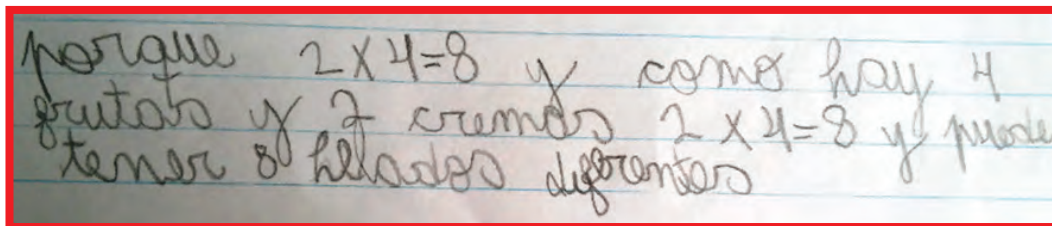 porque 2x4=8 y como hay 4
frutas y 2 cremas 2x4=8 y puede
tener 8 helados diferentes